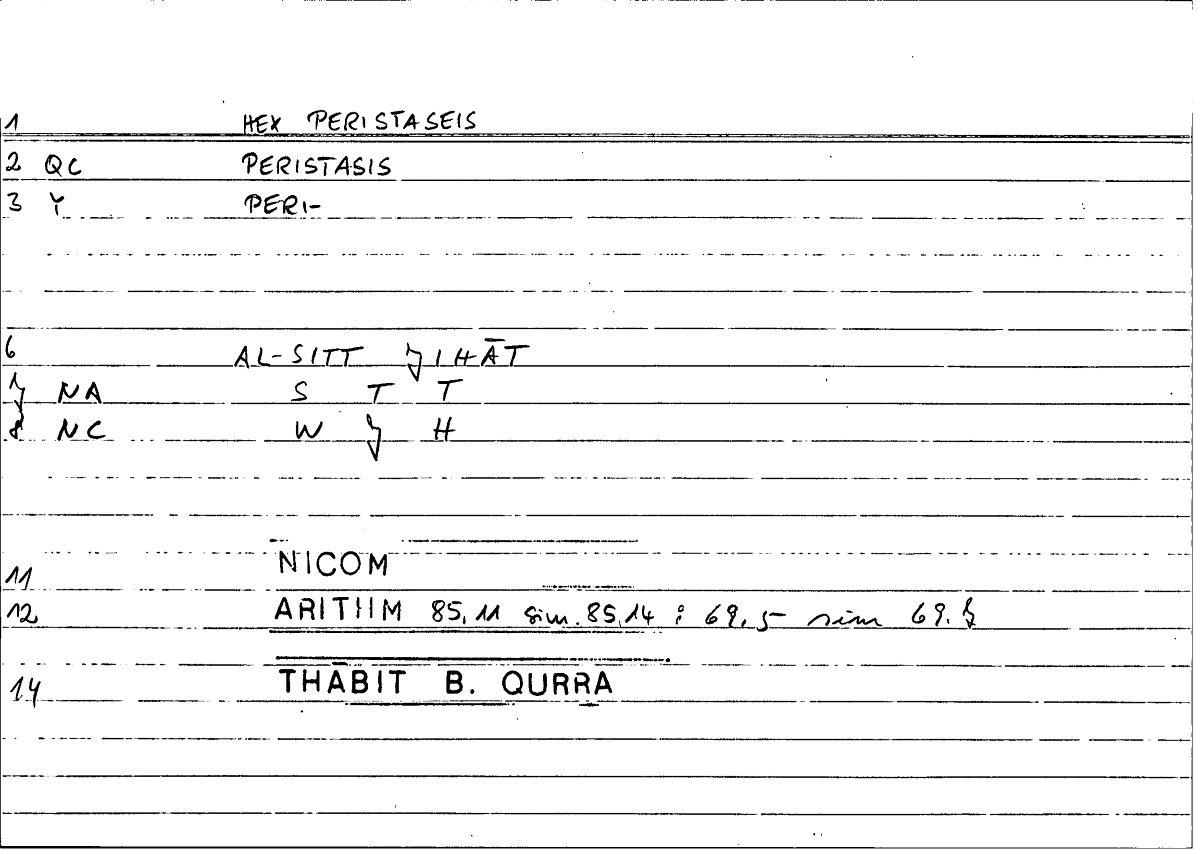 1 HEX PERISTASEIS
2 QC PERISTASIS
3 Y PERI-
6 AL-SITT JIHĀT
7 NA S T T
8 NC W J H
11 NICOM
12 ARITHM 85,11 sim. 85,14 : 69,5 sim 69.
14 THĀBIT B. QURRA